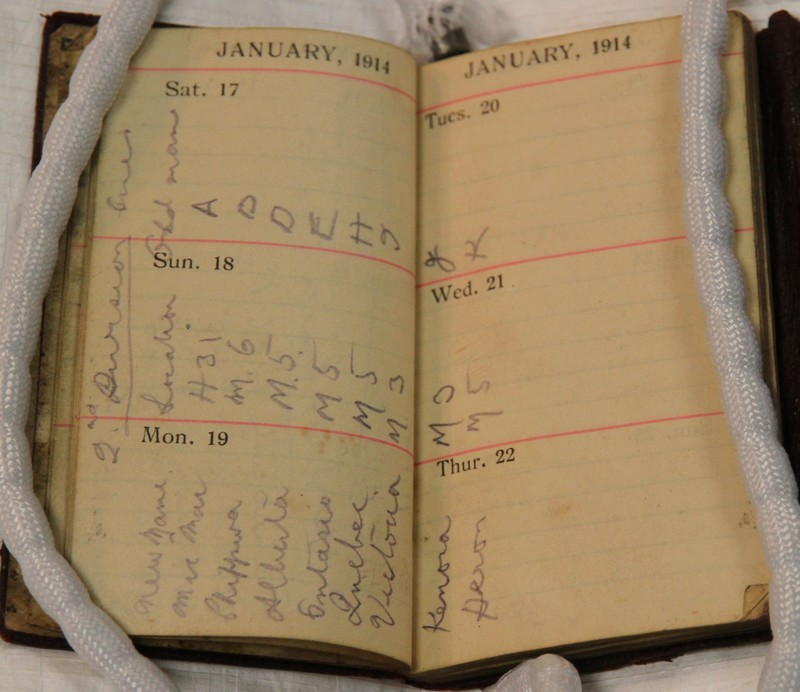 JANUARY, 1914
Sat. 17
Sun. 18
Mon. 19
2nd Division Lines
New Name Location Old name
Mic Mac H 31 A
M. 6
Alberta M. 5. D
Ontario M 5 E
Quebec M 5 H
Victoria M 3 J
JANUARY, 1914
Tues. 20
Wed. 21
Thur. 22
Kenora M
M 5 K